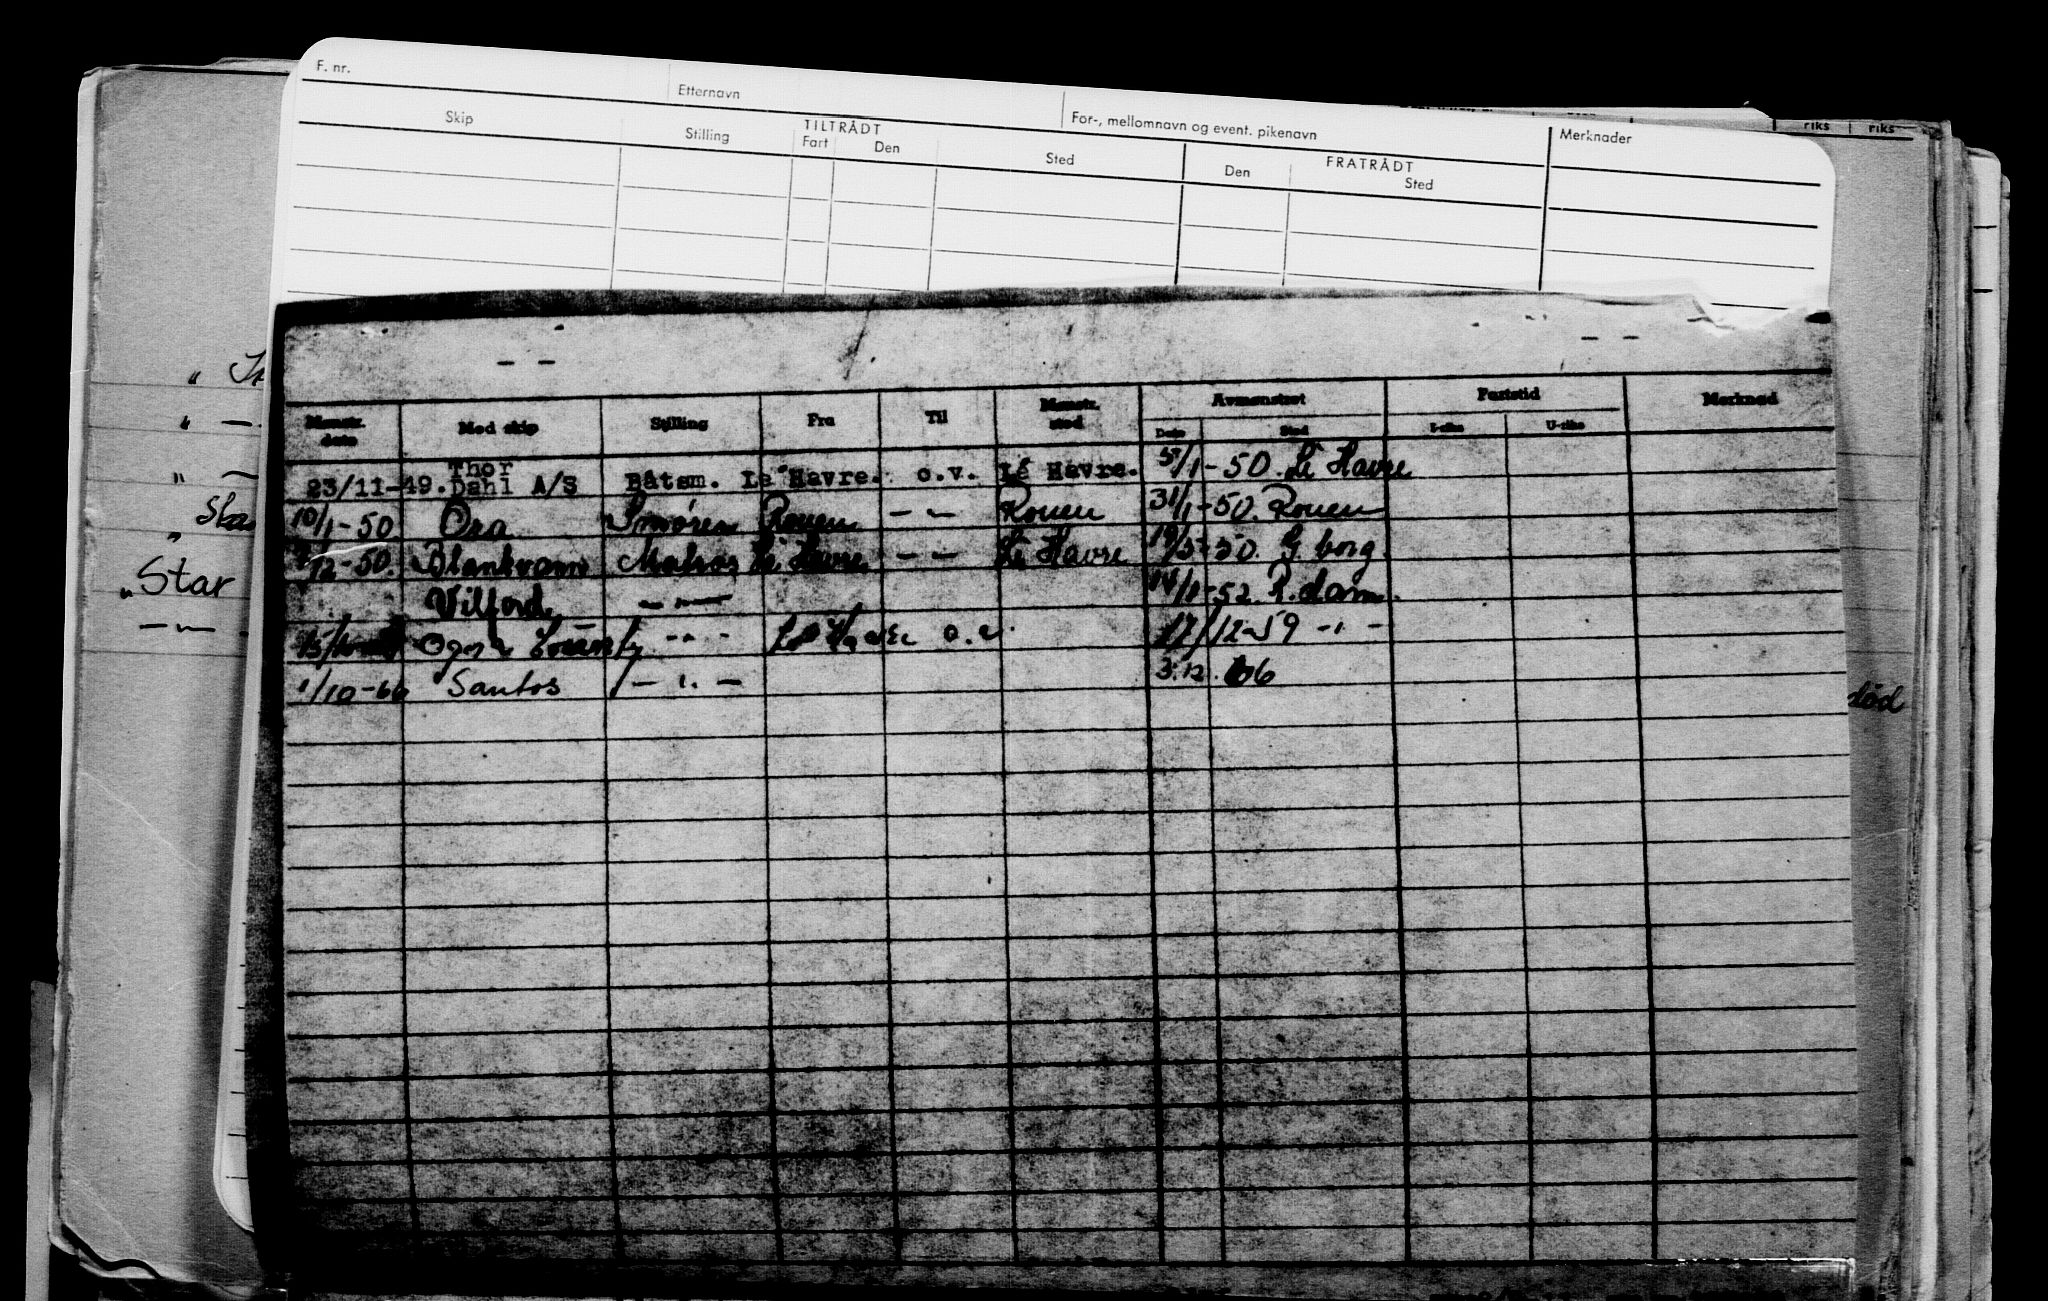 F. nr.
Etternavn
For-, mellomnavn og event. pikenavn
Merknader
Skip
Stilling
TILTRÅDT
Fart
Den
Sted
FRATRÅDT
Den
Sted
riks
riks
Mønstr. dato
Med skip
Stilling
Fra
Til
Mønstr. sted
Avmønstret
Dato
Sted
Fartstid
I-riks
U-riks
Merknad
23/11-49. Thor Dahl A/S Båtsm. Le Havre. o.v. Le Havre. 5/1-50. Le Havre
10/1-50 Ora Smører Rouen -"- Rouen 31/1-50. Rouen
12-50. Blankvann Matros Le Havre -"- Le Havre 19/5-50. G.borg
Vilford -"- 14/1-52 R.dam.
15/ Ogna Le Havre o.v. 17/12-59 -"-
1/10-66 Santos -"- 3.12.66
" Star
-"-
død